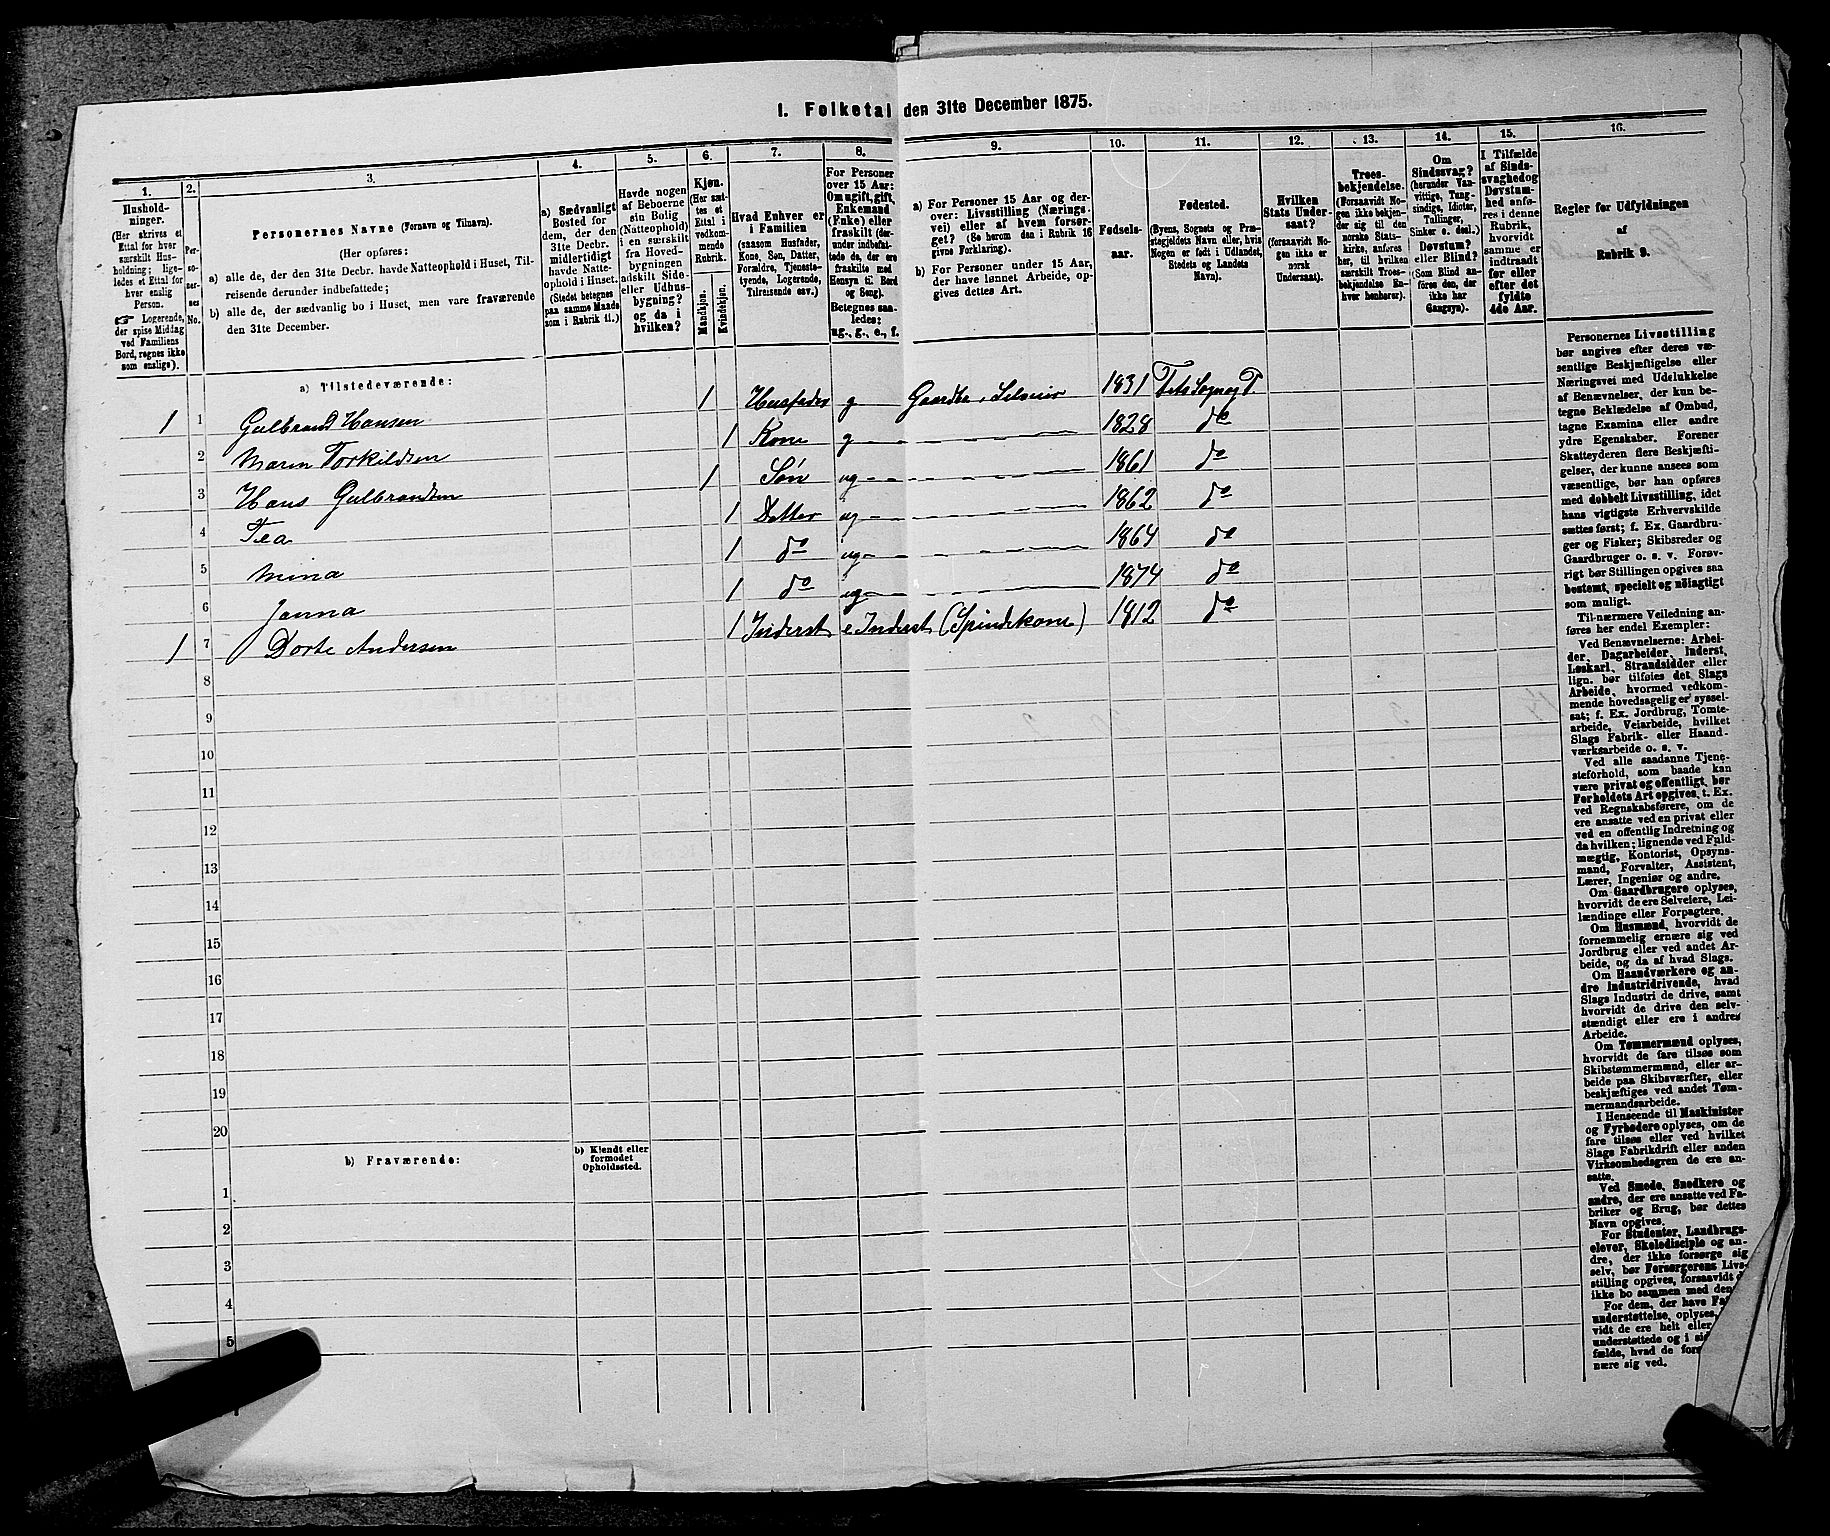 I. Folketal den 31te December 1875.
1.
2.
3.
4.
5.
6.
7.
8.
9.
10.
11.
12.
13.
14.
15.
16.
Hushold-
ninger.
(Her skrives et
Ettal for hver
særskilt Hus-
holdning; lige-
ledes et Ettal for
hver enslig
Person.
☞ Logerende,
der spise Middag
ved Familiens
Bord, regnes ikke
som enslige).
Per-
so-
ner-
nes
No.
Personernes Navne (Fornavn og Tilnavn).
(Her opføres:
a) alle de, der den 31te Decbr. havde Natteophold i Huset, Til-
reisende derunder indbefattede;
b) alle de, der sædvanlig bo i Huset, men vare fraværende
den 31te December.
a) Sædvanligt
Bosted for
dem, der den
31te Decbr.
midlertidigt
havde Natte-
ophold i Huset.
(Stedet betegnes
paa samme Maade
som i Rubrik 11.)
Havde nogen
af Beboerne
sin Bolig
(Natteophold)
i en særskilt
fra Hoved-
bygningen
adskilt Side-
eller Udhus-
bygning?
og da i
hvilken?
Kjøn.
(Her sæt-
tes et
Ettal i
vedkom-
mende
Rubrik.
Mandkjøn.
Kvindekjøn.
Hvad Enhver er
i Familien
(saasom Husfader,
Kone, Søn, Datter,
Forældre, Tjeneste-
tyende, Logerende,
Tilreisende osv.)
For Personer
over 15 Aar:
Om ugift, gift,
Enkemand
(Enke) eller
fraskilt (der-
under indbefat-
tede de, der ere
fraskilte med
Hensyn til Bord
og Seng).
Betegnes saa-
ledes:
ug., g., e., f.
a) For Personer 15 Aar og der-
over: Livsstilling (Nærings-
vei) eller af hvem forsør-
get? (Se herom den i Rubrik 16
givne Forklaring).
b) For Personer under 15 Aar,
der have lønnet Arbeide, op-
gives dettes Art.
Fødsels-
aar.
Fødested.
(Byens, Sognets og Præ-
stegjeldets Navn eller, hvis
Nogen er født i Udlandet,
Stedets og Landets
Navn).
Hvilken
Stats Under-
saat?
(forsaavidt No-
gen ikke er
norsk
Undersaat).
Troes-
bekjendelse.
(Forsaavidt No-
gen ikke bekjen-
der sig til den
norske Stats-
kirke, anføres
her, til hvilken
særskilt Troes-
bekjendelse En-
hver henhører).
Om
Sindssvag?
(herunder Van-
vittige, Tung-
sindige, Idioter,
Tullinger,
Sinker o. desl.)
Døvstum?
eller Blind?
(Som Blind an-
føres den, der
ikke har
Gangsyn).
I Tilfælde
af Sinds-
svaghed og
Døvstum-
hed anfø-
res i denne
Rubrik,
hvorvidt
samme er
indtraadt
før eller
efter det
fyldte
4de Aar.
Regler for Udfyldningen
af
Rubrik 9.
a) Tilstedeværende:
1 1 Gulbrand Hansen 1 Husfader g Gaardbr. Selveier 1831
2 Maren Torkildsen 1 Kone g 1828 do
3 Hans Gulbrandsen 1 Søn ug 1861 do
4 Tea 1 Datter ug 1862 do
5 Mina 1 do ug 1864 do
6 Janna 1 do ug 1874 do
1 7 Dorte Andersen 1 Inderst e Inderst (Spindekone) 1812 do
8
9
10
11
12
13
14
15
16
17
18
19
20
b) Fraværende:
b) Kjendt eller
formodet
Opholdssted.
1
2
3
4
5
Personernes Livsstilling
bør angives efter deres væ-
sentlige Beskjæftigelse eller
Næringsvei med Udelukkelse
af Benævnelser, der kun be-
tegne Beklædelse af Ombud,
tagne Examina eller andre
ydre Egenskaber. Forener
Skatteyderen flere Beskjæfti-
gelser, der kunne ansees som
væsentlige, bør han opføres
med dobbelt Livsstilling, idet
hans vigtigste Erhvervskilde
sættes først; f. Ex. Gaardbru-
ger og Fisker; Skibsreder og
Gaardbruger o. s. v. Forøv-
rigt bør Stillingen opgives saa
bestemt, specielt og nøiagtigt
som muligt.
Til nærmere Veiledning an-
føres her endel Exempler:
Ved Benævnelserne: Arbei-
der, Dagarbeider, Inderst,
Løskarl, Strandsidder eller
lign. bør tilføies det Slags
Arbeide, hvormed vedkom-
mende hovedsagelig er syssel-
sat; f. Ex. Jordbrug, Tomte-
arbeide, Veiarbeide, hvilket
Slags Fabrik- eller Haand-
værksarbeide o. s. v.
Ved alle saadanne Tjene-
steforhold, som baade kan
være privat og offentligt, bør
Forholdets Art opgives, t. Ex.
ved Regnskabsførere, om de
ere ansatte ved en privat eller
ved en offentlig Indretning og
da hvilken; lignende ved Fuld-
mægtig, Kontorist, Opsyns-
mand, Forvalter, Assistent,
Lærer, Ingeniør og andre.
Om Gaardbrugere oplyses,
hvorvidt de ere Selveiere, Lei-
lændinge eller Forpagtere.
Om Husmænd, hvorvidt de
fornemmelig ernære sig ved
Jordbrug eller ved andet Ar-
beide, og da af hvad Slags.
Om Haandværkere og an-
dre Industridrivende, hvad
Slags Industri de drive, samt
hvorvidt de drive den selv-
stændigt eller ere i andres
Arbeide.
Om Tømmermænd oplyses,
hvorvidt de fare tilsøs som
Skibstømmermænd, eller ar-
beide paa Skibsværfter, eller
beskjæftiges ved andet Tøm-
mermandsarbeide.
I Henseende til Maskinister
og Fyrbødere oplyses, om de
fare tilsøs eller ved hvilket
Slags Fabrikdrift eller anden
Virksomhedsgren de ere an-
satte.
Ved Smede, Snedkere og
andre, der ere ansatte ved Fa-
briker og Brug, bør dettes
Navn opgives.
For Studenter, Landbrugs-
elever, Skoledisciple og an-
dre, der ikke forsørge sig
selv, bør Forsørgerens Livs-
stilling opgives, forsaavidt
ikke bo sammen med den
For dem, der have
understøttelse, oplyses,
vidt de ere helt eller
understøttede og i
fælde, hvad de
nære sig ved.